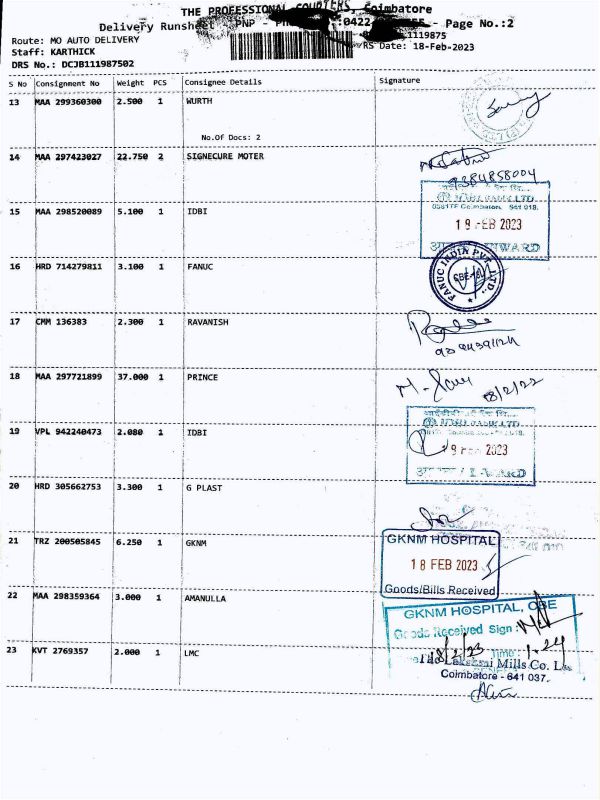 THE PROFESSIONAL COURIERS, Coimbatore
Delivery Runsheet PNP - :0422 - Page No.:2
1119875
Route: MO AUTO DELIVERY
Staff: KARTHICK RS Date: 18-Feb-2023
DRS No.: DCJB111987502
S No Consignment No Weight PCS Consignee Details Signature
13 MAA 299360300 2.500 1 WURTH
No.Of Docs: 2
14 MAA 297423027 22.750 2 SIGNECURE MOTER
9384858004
15 MAA 298520089 5.100 1 IDBI
Coimbatore. 641 018.
19 FEB 2023
INWARD
16 HRD 714279811 3.100 1 FANUC
FANUC INDIA PVT. LTD.,
17 CMM 136383 2.300 1 RAVANISH
18 MAA 297721899 37.000 1 PRINCE
18/2/22
19 VPL 942240473 2.080 1 IDBI
2023
20 HRD 305662753 3.300 1 G PLAST
21 TRZ 200505845 6.250 1 GKNM
GKNM HOSPITAL
18 FEB 2023
Goods/Bills Received
22 MAA 298359364 3.000 1 AMANULLA
GKNM HOSPITAL, CBE
Goods Received Sign :
18/2/23 Time : 1.24
23 KVT 2769357 2.000 1 LMC
The Lakshmi Mills Co. L
Coimbatore - 641 037.